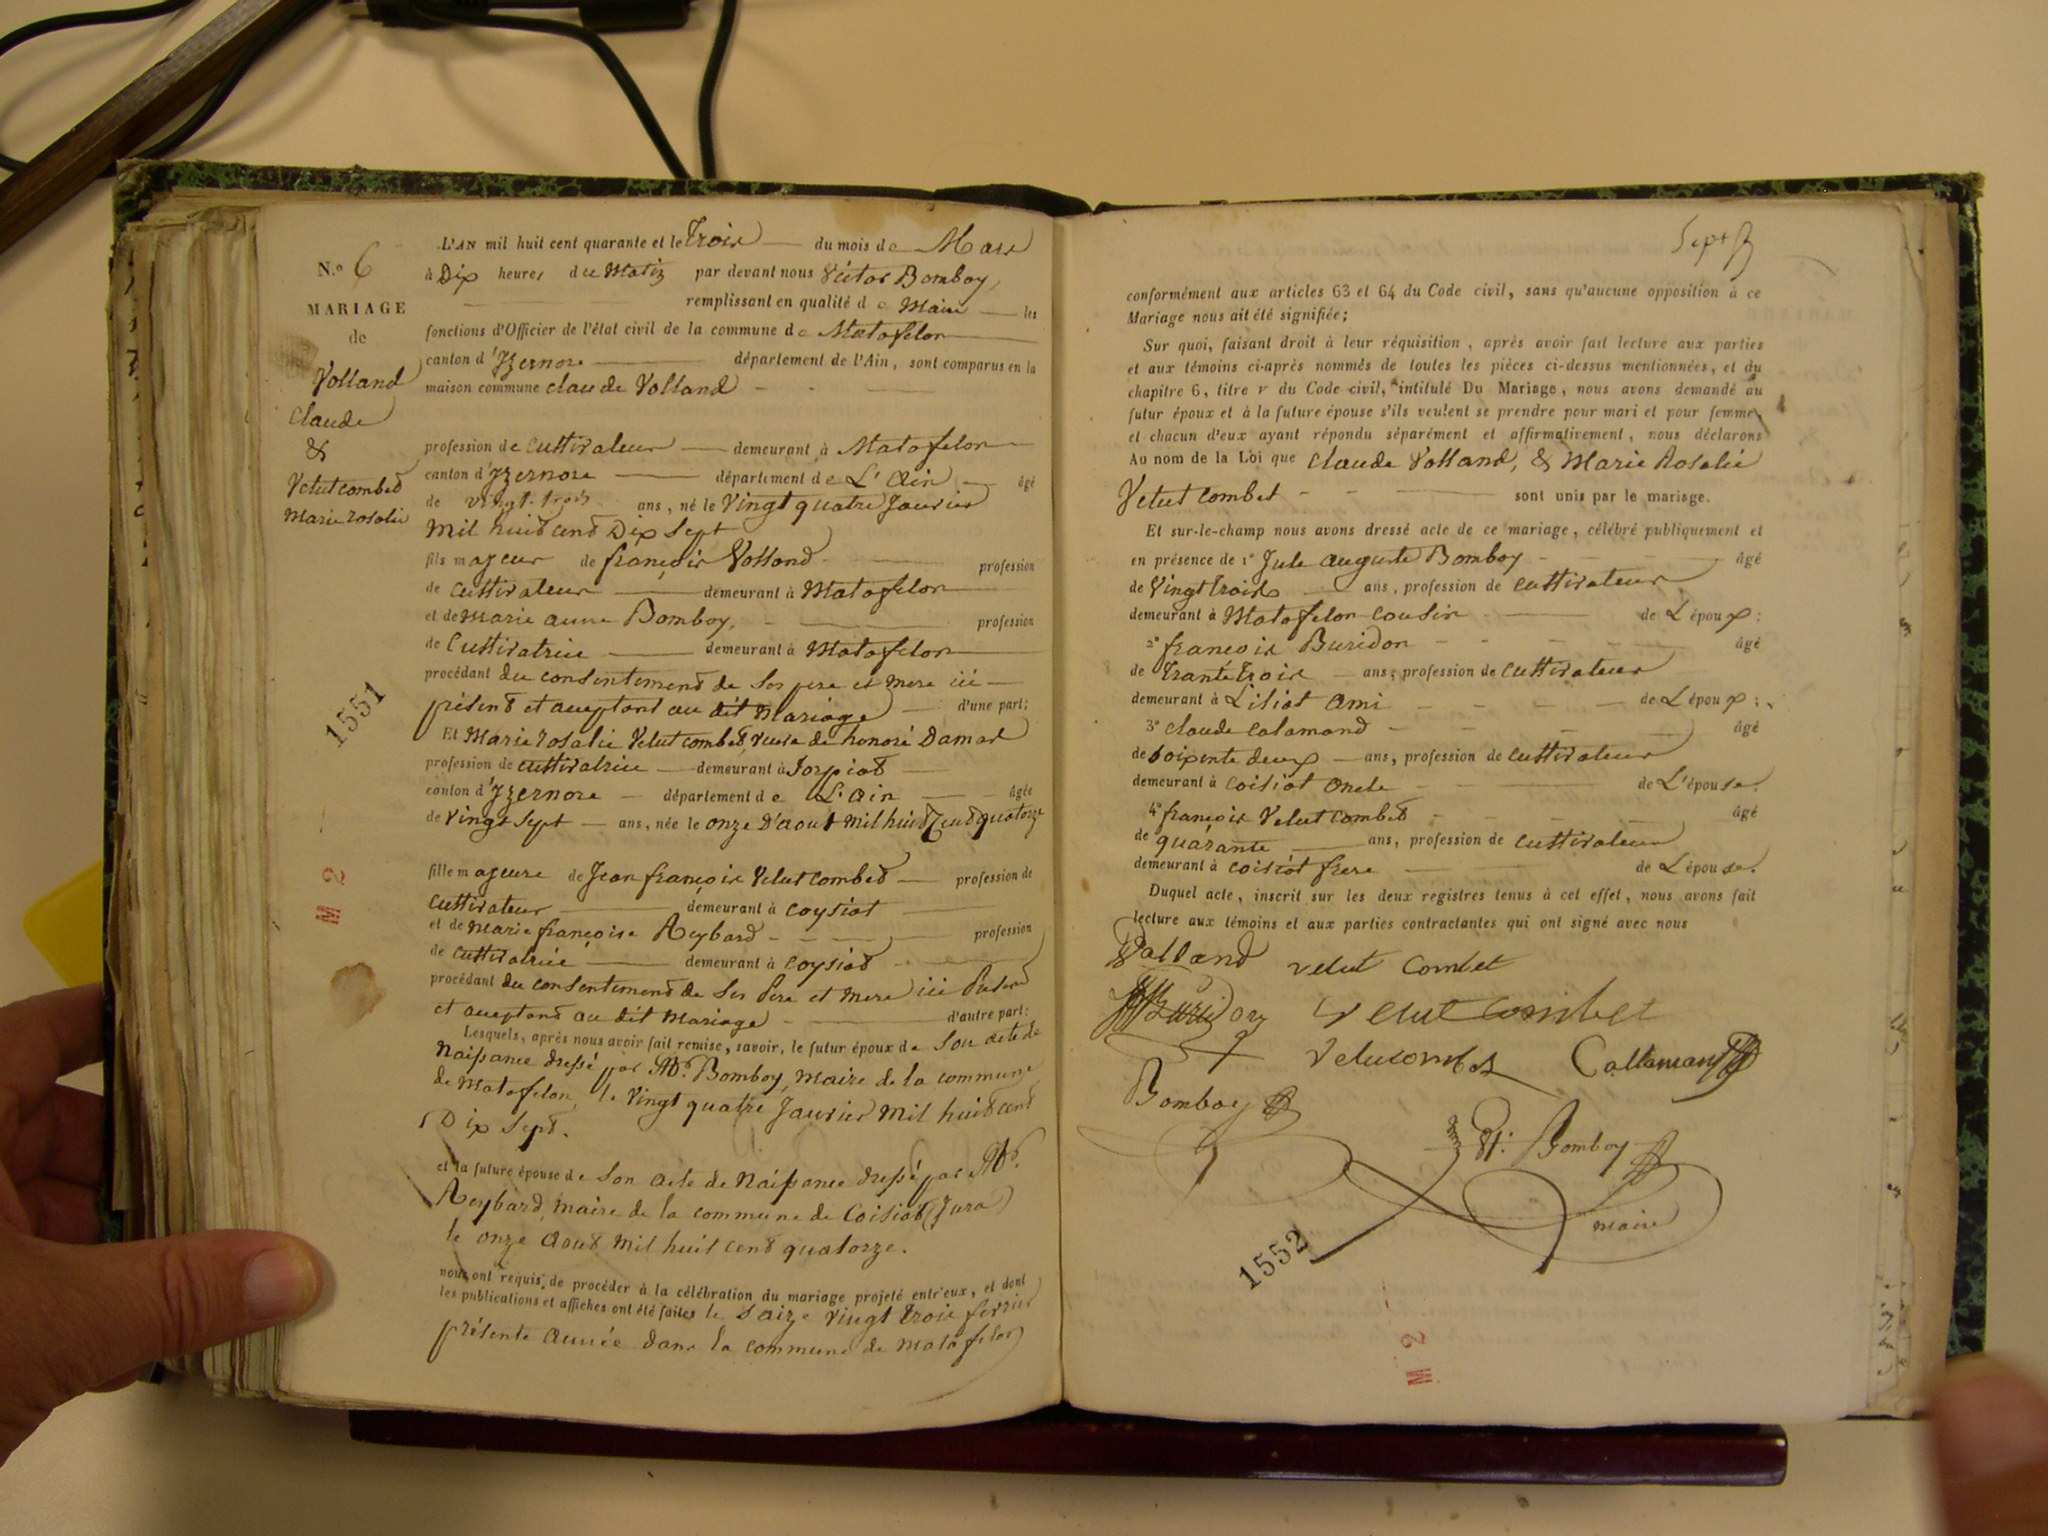 N.o 6
MARIAGE
de
Volland
Claude
&
Velut combed
Marie rosalie
L'AN mil huit cent quarante et le Trois du mois de Mars
à Dix heures du Matin par devant nous Victor Bomboy
remplissant en qualité de Maire les
fonctions d'Officier de l'état civil de la commune de Matafelon
canton d'Yzernore département de l'Ain, sont comparus en la
maison commune claude Volland
profession de cultivateur demeurant à Matafelon
canton d'Yzernore département de L'Ain âgé
de vingt. trois ans, né le Vingt quatre Janvier
Mil huit cent Dix sept
fils majeur de françois Volland profession
de cultivateur demeurant à Matafelon
et de Marie anne Bomboy, profession
de Cultivatrice demeurant à Matafelon
procédant du consentement de ses pere et mere ici
présent et acceptant au dit Mariage d'une part;
Et Marie rosalie Velut combet, veuve de honoré Damas
profession de cultivatrice demeurant à
canton d'Yzernore département de L'Ain âgée
de Vingt sept ans, née le onze D'aout Mil huit Cent quatorze
fille majeure de Jean françois Velut combed profession de
cultivateur demeurant à coysiat
et de Marie françoise Reybard profession
de cultivatrice demeurant à coysiat
procédant du consentement de ses Pere et mere ici Présent
et acceptant au dit Mariage d'autre part;
Lesquels, après nous avoir fait remise, savoir, le futur époux de Son acte de
Naissance dressé par Mr. Bomboy, Maire de la commune
de Matafelon, le Vingt quatre Janvier Mil huit cent
Dix Sept.
et la future épouse de Son acte de Naissance dressé par Mr.
Reybard, Maire de la commune de Coisiat (Jura)
le onze Aout Mil huit cent quatorze.
nous ont requis de procéder à la célébration du mariage projeté entr'eux, et dont
les publications et affiches ont été faites le Saize Vingt trois fevrier
présente année dans la commune de Matafelon
1551
M 2
conformément aux articles 63 et 64 du Code civil, sans qu'aucune opposition à ce
Mariage nous ait été signifiée;
Sur quoi, faisant droit à leur réquisition, après avoir fait lecture aux parties
et aux témoins ci-après nommés de toutes les pièces ci-dessus mentionnées, et du
chapitre 6, titre v du Code civil, intitulé Du Mariage, nous avons demandé au
futur époux et à la future épouse s'ils veulent se prendre pour mari et pour femme,
et chacun d'eux ayant répondu séparément et affirmativement, nous déclarons
Au nom de la Loi que Claude Volland, & Marie Rosalie
Velut combet sont unis par le mariage.
Et sur-le-champ nous avons dressé acte de ce mariage, célébré publiquement et
en présence de 1o Jule auguste Bomboy âgé
de Vingt trois ans, profession de cultivateur
demeurant à Matafelon cousin de L'époux;
2o françois Buridon âgé
de trante trois ans, profession de cultivateur
demeurant à Lisiat Ami de L'époux;
3o claude calamand âgé
de soixente deux ans, profession de cultivateur
demeurant à coisiat oncle de L'épouse.
4o françois Velut combet âgé
de quarante ans, profession de cultivateur
demeurant à coisiat frere de L'épouse.
Duquel acte, inscrit sur les deux registres tenus à cet effet, nous avons fait
lecture aux témoins et aux parties contractantes qui ont signé avec nous
Volland velut combet
Buridon velut combet
velucombet Callamand
Bomboy
Vr. Bomboy
maire
1552
M 2